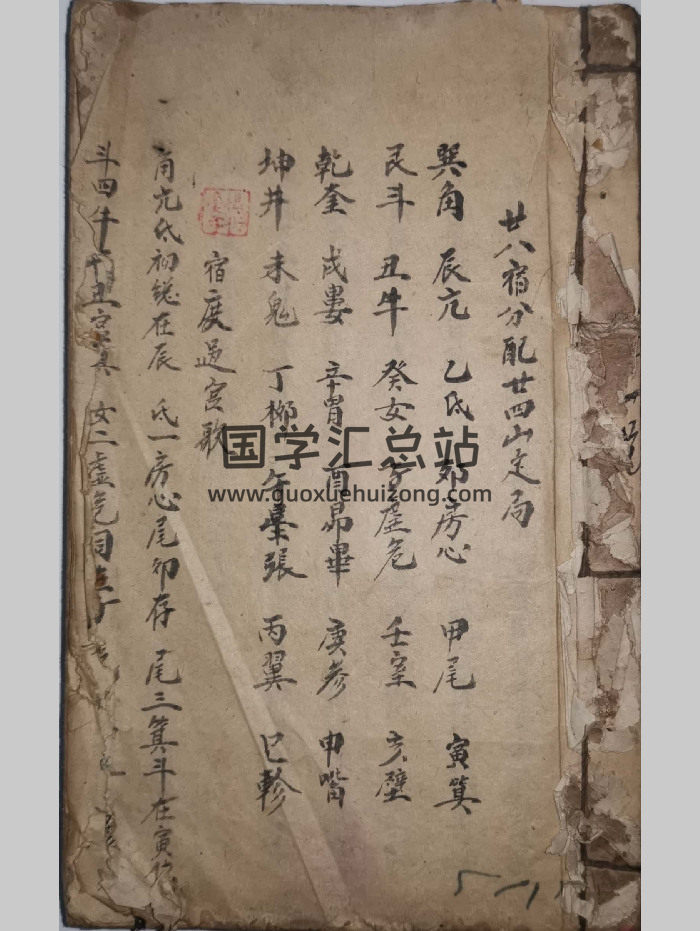 廿八宿分配廿四山定局
巽角 辰亢 乙氐 卯房心 甲尾 寅箕
艮斗 丑牛 癸女 子虚危 壬室 亥壁
乾奎 戌婁 辛胃 酉昴畢 庚参 申嘴
坤井 未鬼 丁柳 午星張 丙翼 巳軫
宿度过宫歌
角亢氐初総在辰 氐一房心尾卯存 尾三箕斗在寅
斗四牛 丑宫 女二虚危同 子
国学汇总站
www.guoxuehuizong.com